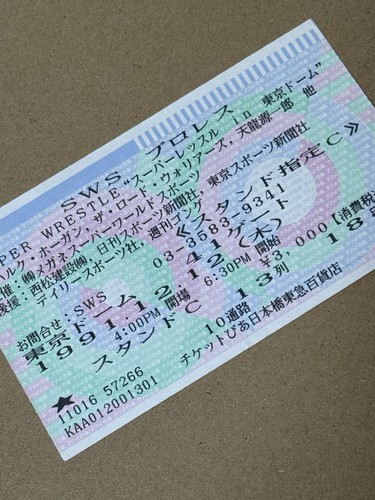 SWS プロレス
PER WRESTLE "スーパーレッスル in 東京ドーム"
ハルク・ホーガン, ザ・ロード・ウォリアーズ, 天龍源一郎 他
催:㈱メガネスーパーワールドスポーツ
後援:西松建設㈱, 日刊スポーツ新聞社, 東京スポーツ新聞社
デイリースポーツ社, 週刊ゴング
お問合せ:SWS 03-3583-9341 《スタンド指定C》
東京ドーム 41ゲート
1991 12 12(木)
4:00PM 開場 6:30PM 開始 ¥3,000【消費税
スタンドC 10通路 13列 18
チケットぴあ日本橋東急百貨店
11016 57266
KAA012001301